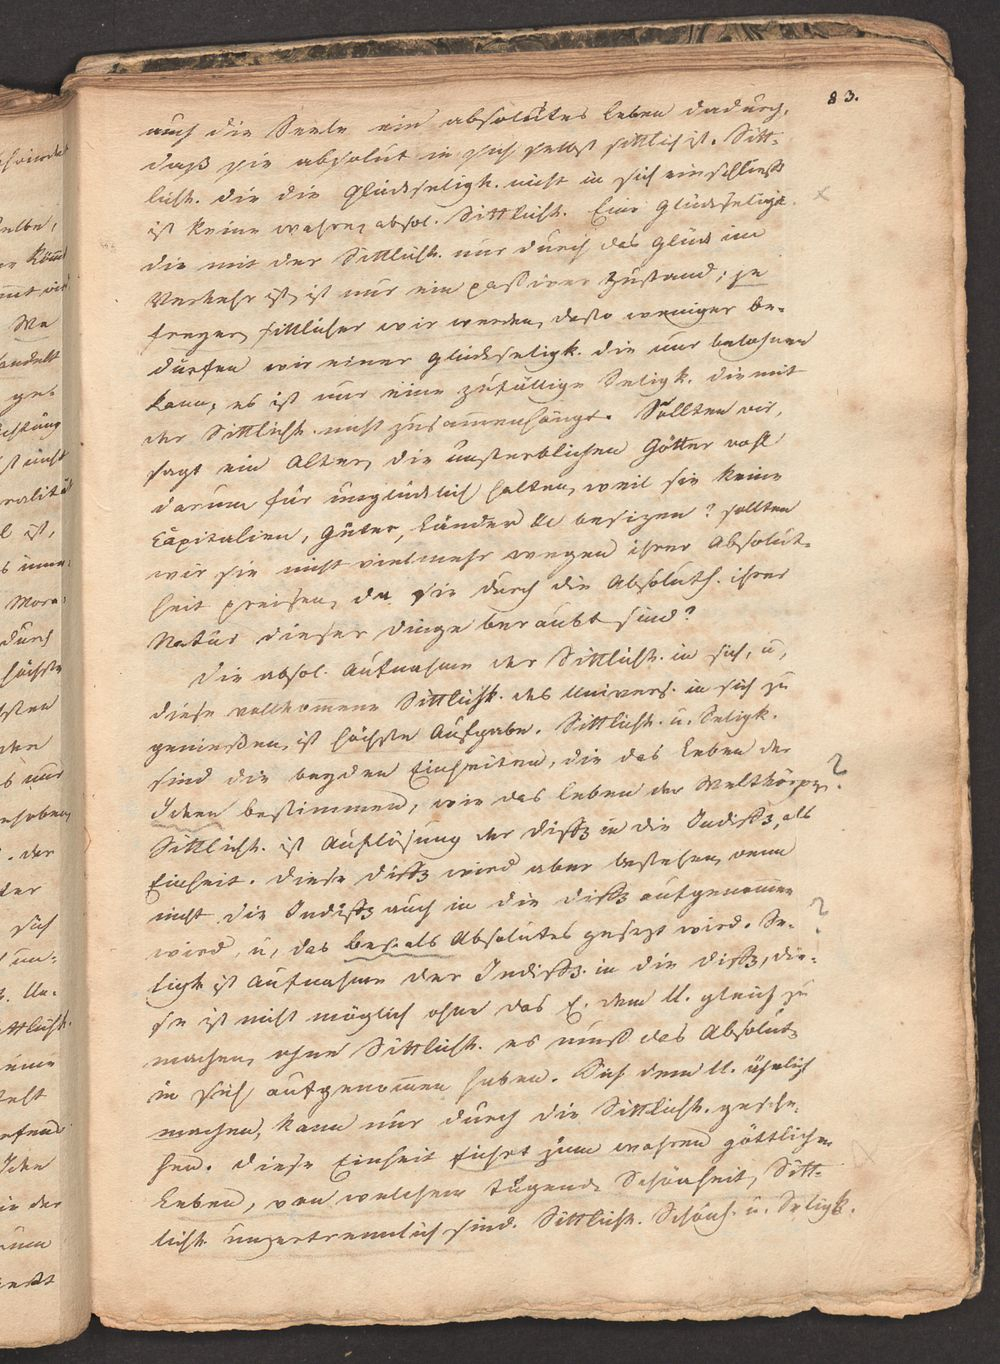 83.
auch die Seele ein absolutes Leben dadurch,
daß sie absolut in sich selbst sittlich ist. Sitt-
lichk. die die Glückseligk. nicht in sich einschließt
ist keine wahre, absol. Sittlichk. Eine Glückseligk.
die mit der Sittlichk. nur durch das Glück im
Verkehr ist, ist nur ein passiver Zustand; je
freyer, sittlicher wir werden, desto weniger be-
dürfen wir einer Glückseligk. die nur belohnen
kann, es ist nur eine zufällige Seligk. die mit
der Sittlichk. nicht zusammenhängt. Sollten wir,
sagt ein Alter, die unsterblichen Götter wohl
darum für unglücklich halten, weil sie keine
Capitalien, Güter, Länder &c besizen? sollten
wir sie nicht vielmehr wegen ihrer Absolut-
heit preisen, da sie durch die Absoluth. ihrer
Natur dieser Dinge beraubt sind?
Die absol. Aufnahme der Sittlichk. in sich, u,
diese vollkommene Sittlichk. des Univers. in sich zu
genießen, ist höchste Aufgabe. Sittlichk. u. Seligk.
sind die beyden Einheiten, die das Leben der
Ideen bestimmen, wie das Leben der Weltkörper. ?
Sittlichk. ist Auflösung der Diffz in die Indiffz, als
Einheit. Diese Diffz wird aber bestehen, wenn
nicht die Indiffz auch in die Diffz aufgenommen
wird, u, das Bes. als Absolutes gesezt wird. Se- ?
ligk ist Aufnahme der Indiffz. in die Diffz, die-
se ist nicht möglich ohne das E. dem U. gleich zu
machen, ohne Sittlichk. es muß das Absolute
in sich aufgenommen haben. Sich dem U. ähnlich
machen, kann nur durch die Sittlichk. gesche-
hen. Diese Einheit führt zum wahren göttlichen
Leben, von welchem Tugend, Schönheit, Sitt-
lichk. unzertrennlich sind. Sittlichk. Schönh. u. Seligk.